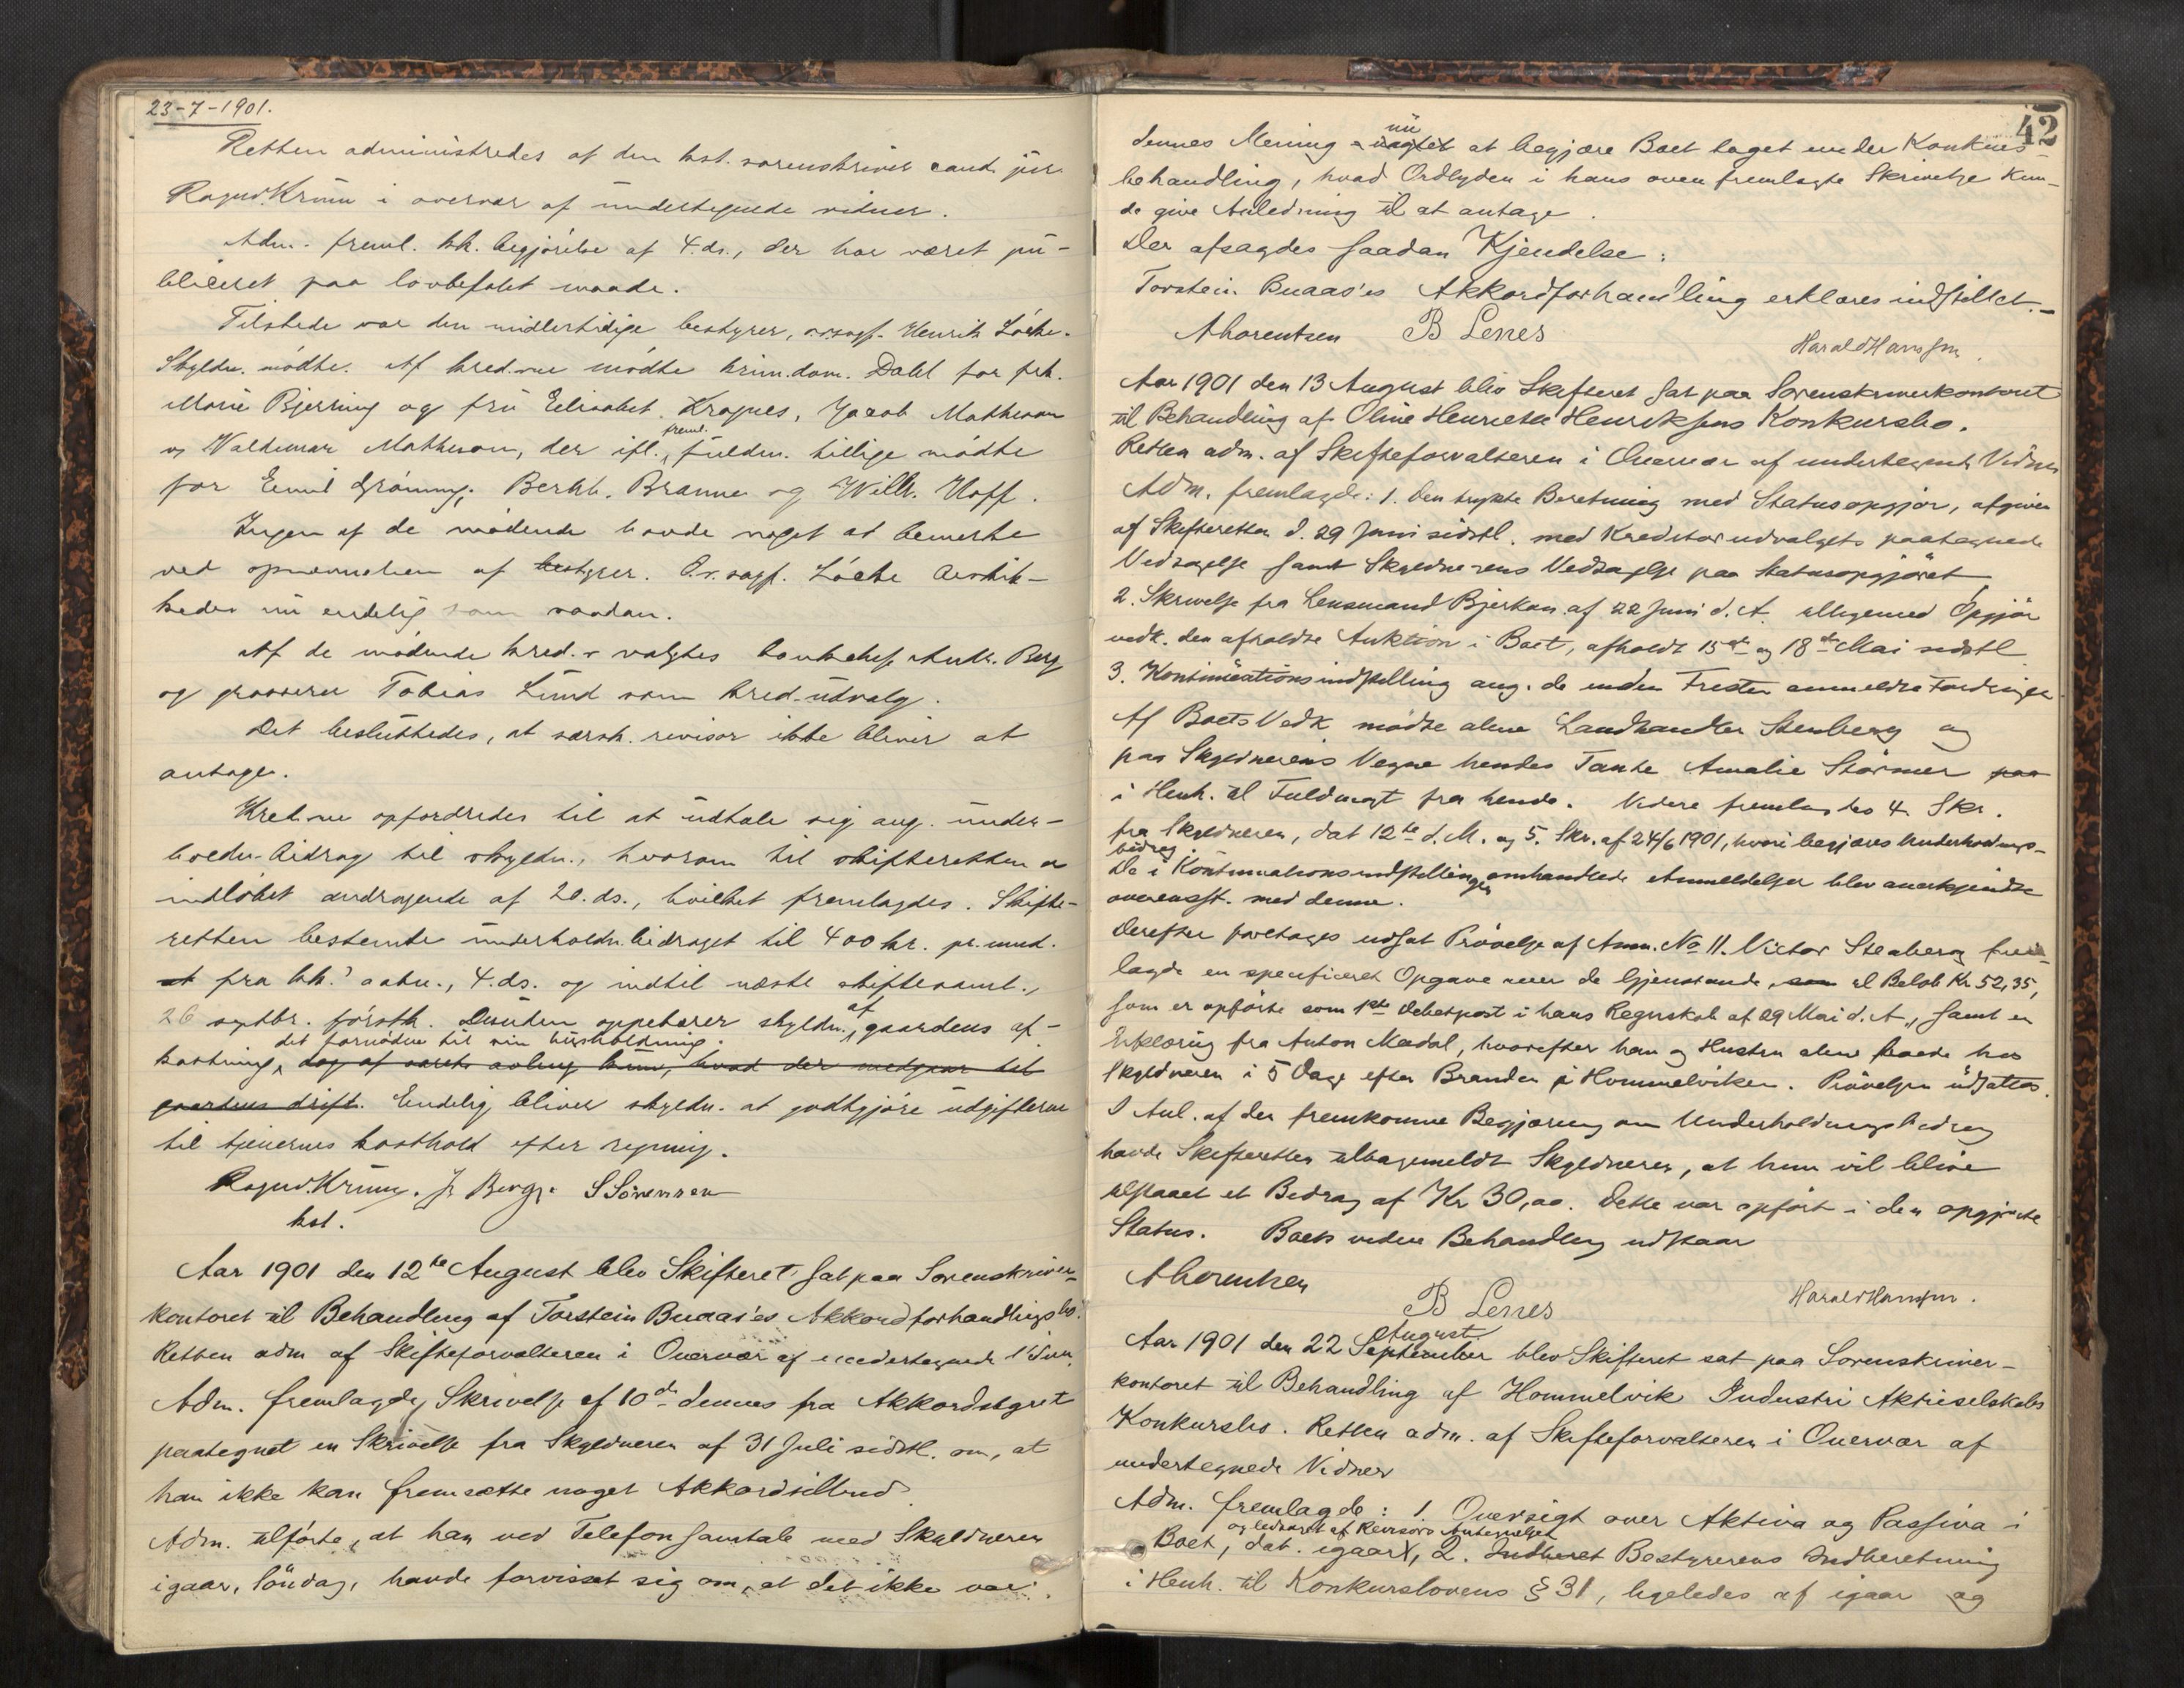 23-7-1901.
Retten administredes af den kst. sorenskriver cand. jur.
Ragnv. Krum i overvær af undertegnede vidner.
Adm. freml. kk. begjørelse af 4. ds., der har været pu-
bliceret paa lovbefalet maade.
Tilstede var den midlertidige bestyrer, o.r.sagf. Henrik Löche.
Skyldn. mödte. Af kred.ne mödte krim.dom. Dahl for frk.
Marie Bjerking og fru Elisabet Kragnes, Jacob Matheson
og Valdemar Matheson, der ifl. freml. fuldm. tillige mödte
for Emil Grönning, Berhh. Branne og Wilh. Hoff.
Ingen af de mödende havde noget at bemerke
ved opnævnelsen af bestyrer. O.r.sagf. Löche beskik-
kedes nu endelig som saadan.
Af de mödende kred.r valgtes bankchef Anth. Berg
og grosserer Tobias Lund som kred.udvalg.
Det besluttedes, at særsk. revisor ikke bliver at
antage.
Kred.ne opfordredes til at udtale sig ang. under-
holdn.bidrag til skyldn., hvorom til skifteretten er
indløbet andragende af 20. ds., hvilket fremlagdes. Skifte-
retten bestemte underholdn.bidraget til 400 kr. pr. mnd.
at fra kk.' aabn., 4. ds. og indtil næste skiftesaml.,
26 septbr. förstk. Desuden oppebærer skyldn. af gaardens af-
kastning det fornödne til sin husholdning. dog af aarets avling kun, hvad der medgaar til
gaardens drift. Endelig bliver skyldn. at godtgjöre udgifterne
til tjenernes kosthold efter regning.
Ragnv. Krum. J. Berg. S Sörensen
kst.
Aar 1901 den 12te August blev Skifteret sat paa Sorenskriver-
kontoret til Behandling af Torstein Buaas'es Akkordforhandlingsbo.
Retten adm af Skifteforvalteren i Overvær af undertegnede Vidner.
Adm. fremlagde Skrivelse af 10de dennes fra Akkordstyret
paategnet en Skrivelse fra Skyldneren af 31 Juli sidstl. om, at
han ikke kan fremsætte noget Akkordtilbud.
Adm. tilförte, at han ved Telefonsamtale med Skyldneren
igaar, Söndag, havde forvisset sig om, at det ikke var
42
dennes Mening nu at begjære Boet taget under Konkurs-
behandling, hvad Ordlyden i hans oven fremlagte Skrivelse kun-
de give Anledning til at antage.
Der afsagdes saadan Kjendelse:
Torstein Buaas'es Akkordforhandling erklæres indstillet.-
A Lorentzen B Lenes Harald Hansen.
Aar 1901 den 13 August blev Skifteret sat paa Sorenskriverkontoret
til Behandling af Oline Henriette Henriksens Konkursbo.
Retten adm. af Skifteforvalteren i Overvær af undertegnede Vidner
Adm. fremlagde: 1. Den trykte Beretning med Statusopgjör, afgiven
af Skifteretten d. 29 Juni sidstl. med Kreditorudvalgets paategnede
Vedtagelse samt Skyldnerens Vedtagelse paa Statusopgjöret
2. Skrivelse fra Lensmand Bjerkan af 22 Juni d. A. alligemed Opgjör
vedk. den afholdte Auktion i Boet, afholdt 15de og 18de Mai sidstl
3. Kontinuationsindstilling ang. de inden Fristen anmeldte Fordringer
Af Boets Vedk mödte alene Landhandler Stenberg og
paa Skyldnerens Vegne hendes Tante Amalie Störmer paa
i Henh. til Fuldmagt fra hende. Videre fremlagdes 4 Skr.
fra Skyldneren, dat 12te d. M. og 5. Skr. af 24/6 1901, hvori begjæres Underholdnings-
bidrag
De i Kontinuationsindstillingen omhandlede Anmeldelser blev anerkjendte
overensst. med denne.
Derefter foretages udsat Prövelse af Anm. No 11. Victor Stenberg frem-
lagde en specificeret Opgave over de Gjenstande, som til Belöb Kr 52,35,
som er opförte som 1ste Debetpost i hans Regnskab af 29 Mai d. A., samt en
Erklæring fra Anton Mædal, hvorefter han og Hustru alene boede hos
Skyldneren i 5 Dage efter Branden på Hommelviken. Prövelsen udsattes.
I Anl. af den fremkomne Begjæring om Underholdningsbidrag
havde Skifteretten tilbagemeldt Skyldneren, at hun vil blive
tilstaaet et Bidrag af Kr 30,00. Dette var opfört i den opgjorte
Status. Boets videre Behandling udstaar
A Lorentzen
B Lenes Harald Hansen.
Aar 1901 den 22 September August blev Skifteret sat paa Sorenskriver-
kontoret til Behandling af Hommelvik Industri Aktieselskabs
Konkursbo. Retten adm. af Skifteforvalteren i Overvær af
undertegnede Vidner
Adm. fremlagde: 1. Oversigt over Aktiva og Passiva i
Boet, dat. igaar, og ledsaget af Revisors Antegnelser 2. Indberet Bestyrerens Indberetning
i Henh. til Konkurslovens § 31, ligeledes af igaar og